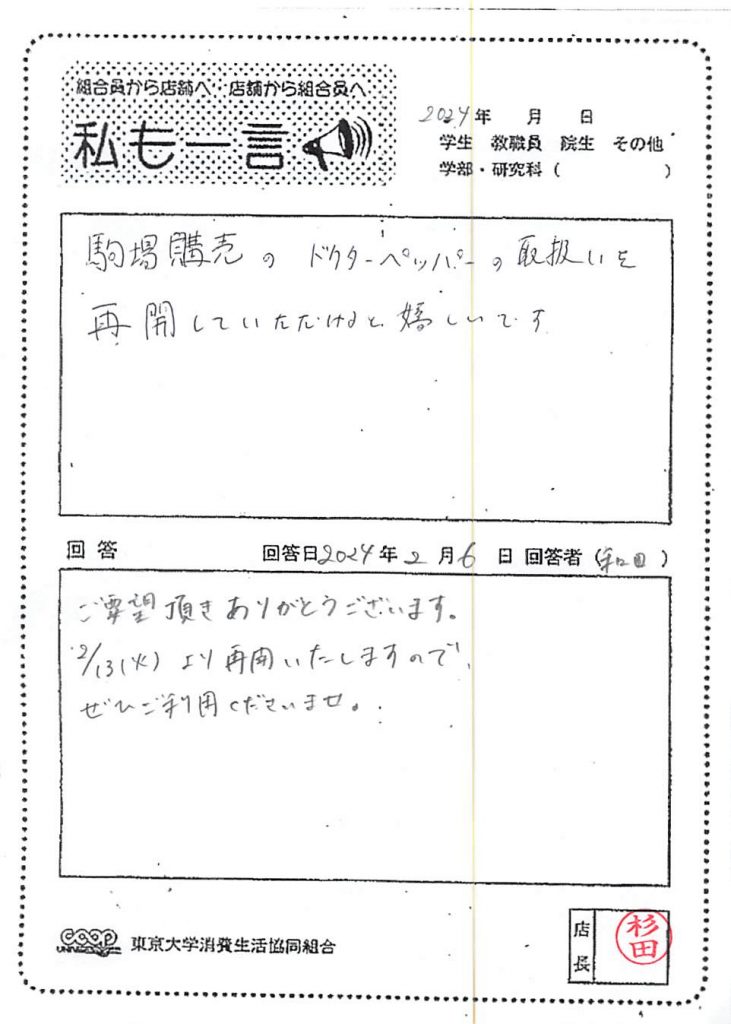 組合員から店舗へ・店舗から組合員へ
私も一言
2024年 月 日
学生 教職員 院生 その他
学部・研究科 ( )
駒場購売の ドクターペッパーの取扱いを
再開していただけると嬉しいです
回答 回答日2024年2月6日 回答者 ( )
ご要望頂きありがとうございます。
2/13(火) より再開いたしますので、
ぜひご利用くださいませ。
COOP 東京大学消費生活協同組合
店長 杉田